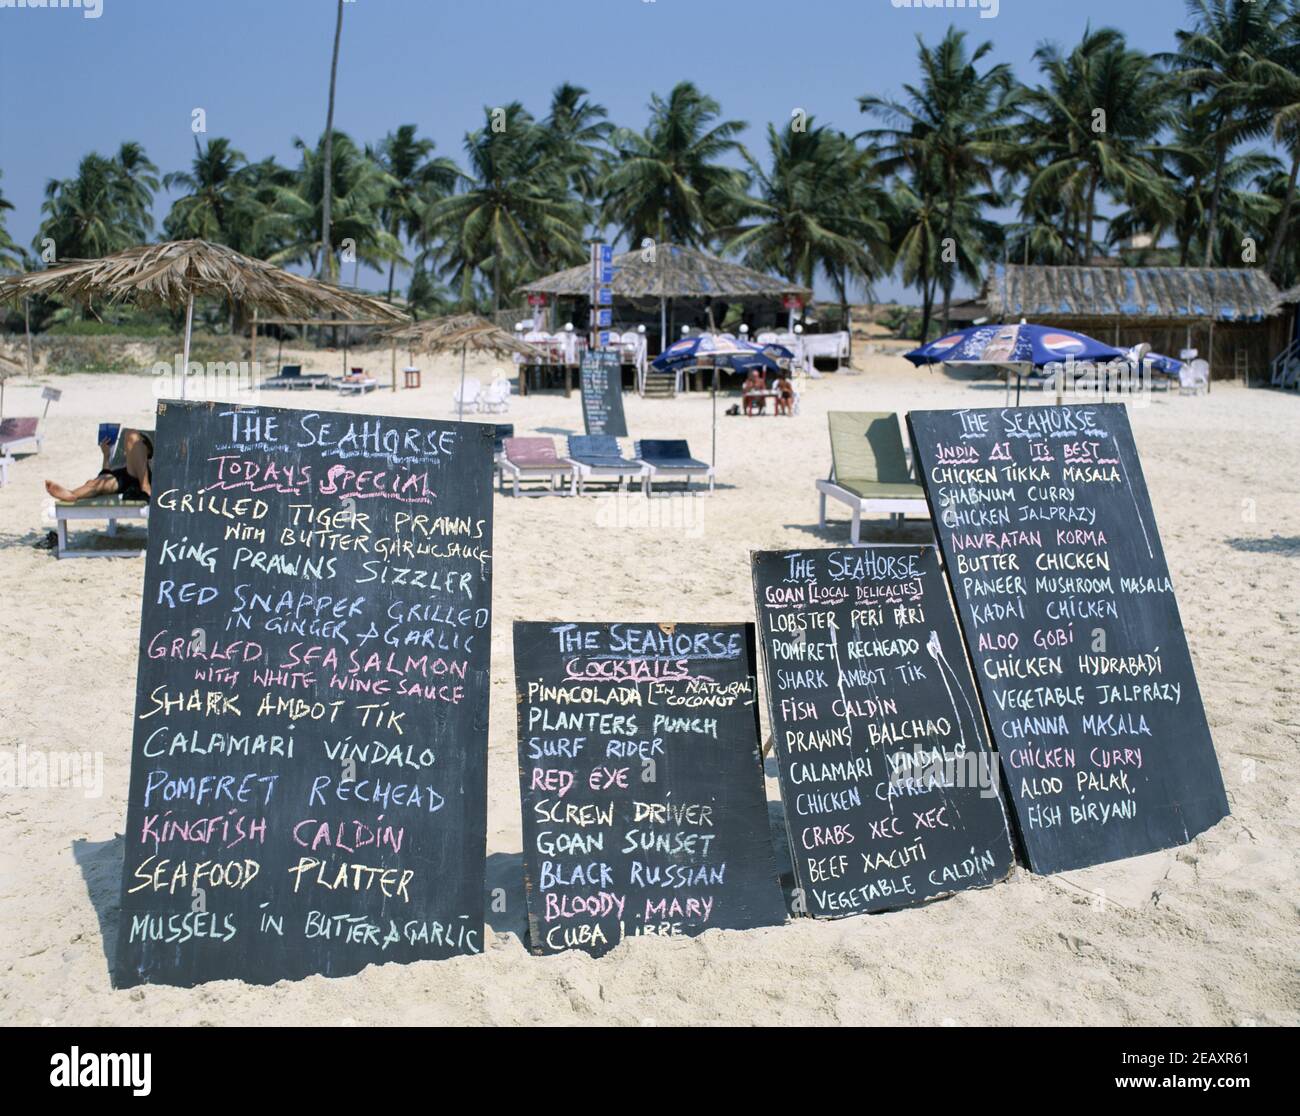 THE SEAHORSE
TODAYS SPECIAL
GRILLED TIGER PRAWNS
WITH BUTTER GARLIC SAUCE
KING PRAWNS SIZZLER
RED SNAPPER GRILLED
IN GINGER & GARLIC
GRILLED SEA SALMON
WITH WHITE WINE SAUCE
SHARK AMBOT TIK
CALAMARI VINDALO
POMFRET RECHEAD
KINGFISH CALDIN
SEAFOOD PLATTER
MUSSELS IN BUTTER & GARLIC
THE SEAHORSE
COCKTAILS
PINACOLADA [IN NATURAL
COCONUT]
PLANTERS PUNCH
SURF RIDER
RED EYE
SCREW DRIVER
GOAN SUNSET
BLACK RUSSIAN
BLOODY MARY
CUBA LIBRE
THE SEAHORSE
GOAN [LOCAL DELICACIES]
LOBSTER PERI PERI
POMFRET RECHEADO
SHARK AMBOT TIK
FISH CALDIN
PRAWNS BALCHAO
CALAMARI VINDALO
CHICKEN CAFREAL
CRABS XEC XEC
BEEF XACUTI
VEGETABLE CALDIN
THE SEAHORSE
INDIA AT ITS BEST
CHICKEN TIKKA MASALA
SHABNUM CURRY
CHICKEN JALPRAZY
NAVRATAN KORMA
BUTTER CHICKEN
PANEER MUSHROOM MASALA
KADAI CHICKEN
ALOO GOBI
CHICKEN HYDRABADI
VEGETABLE JALPRAZY
CHANNA MASALA
CHICKEN CURRY
ALOO PALAK
FISH BIRYANI
alamy
Image ID: 2EAXR61
www.alamy.com